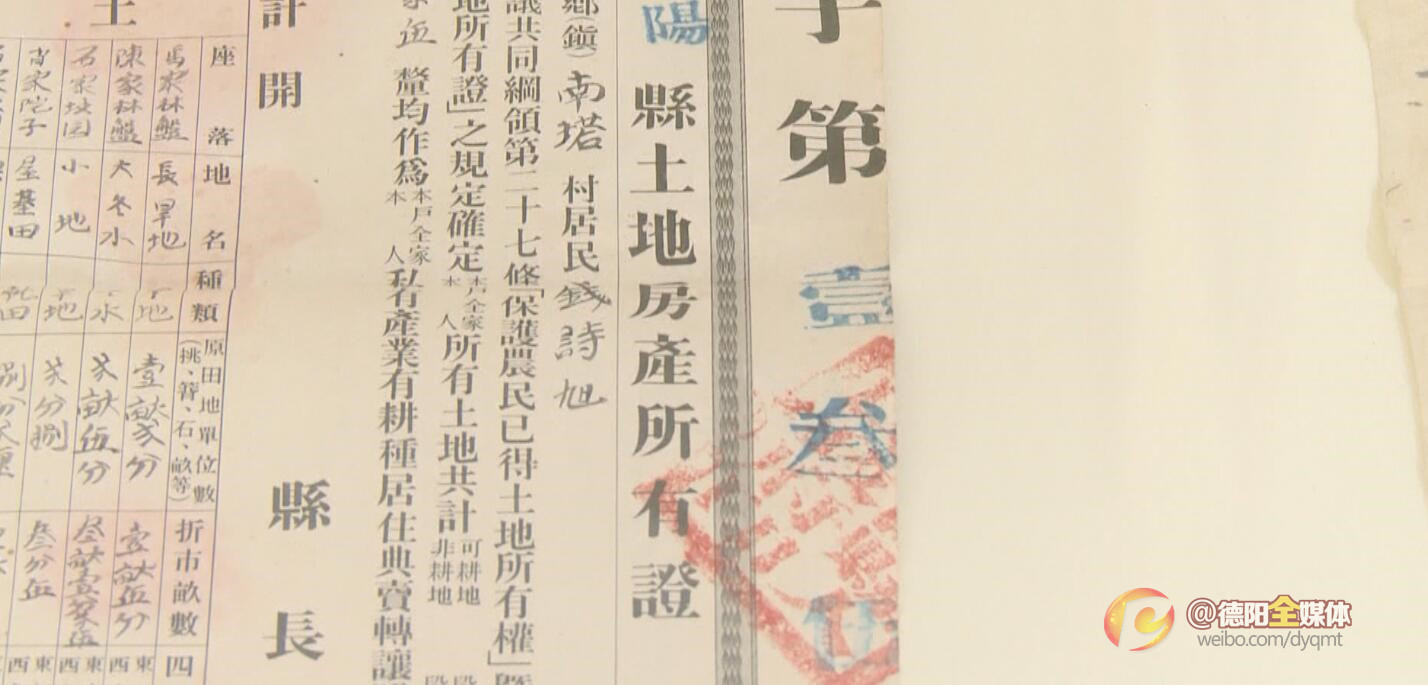 字第
壹叁
陽縣土地房產所有證
鄉(鎮)南塔村居民錢詩旭
議共同綱領第二十七條「保護農民已得土地所有權」暨
地所有證」之規定確定本戶全家本人所有土地共計可耕地非耕地段段
伍釐均作爲本戶全家本人私有產業有耕種居住典賣轉讓
縣長
計開
土
座落 地名 種類 原田地單位數(挑、簪、石、畝等) 折市畝數 四
馬家林盤 長旱地 地 壹畝貳分 壹畝伍分 東西
陳家林盤 大冬水 水 貳畝伍分 叁畝壹 東西
石家坟园 小地 地 貳分捌 叁分伍 東西
肖家陀子 屋基田 田
@德阳全媒体
weibo.com/dyqmt